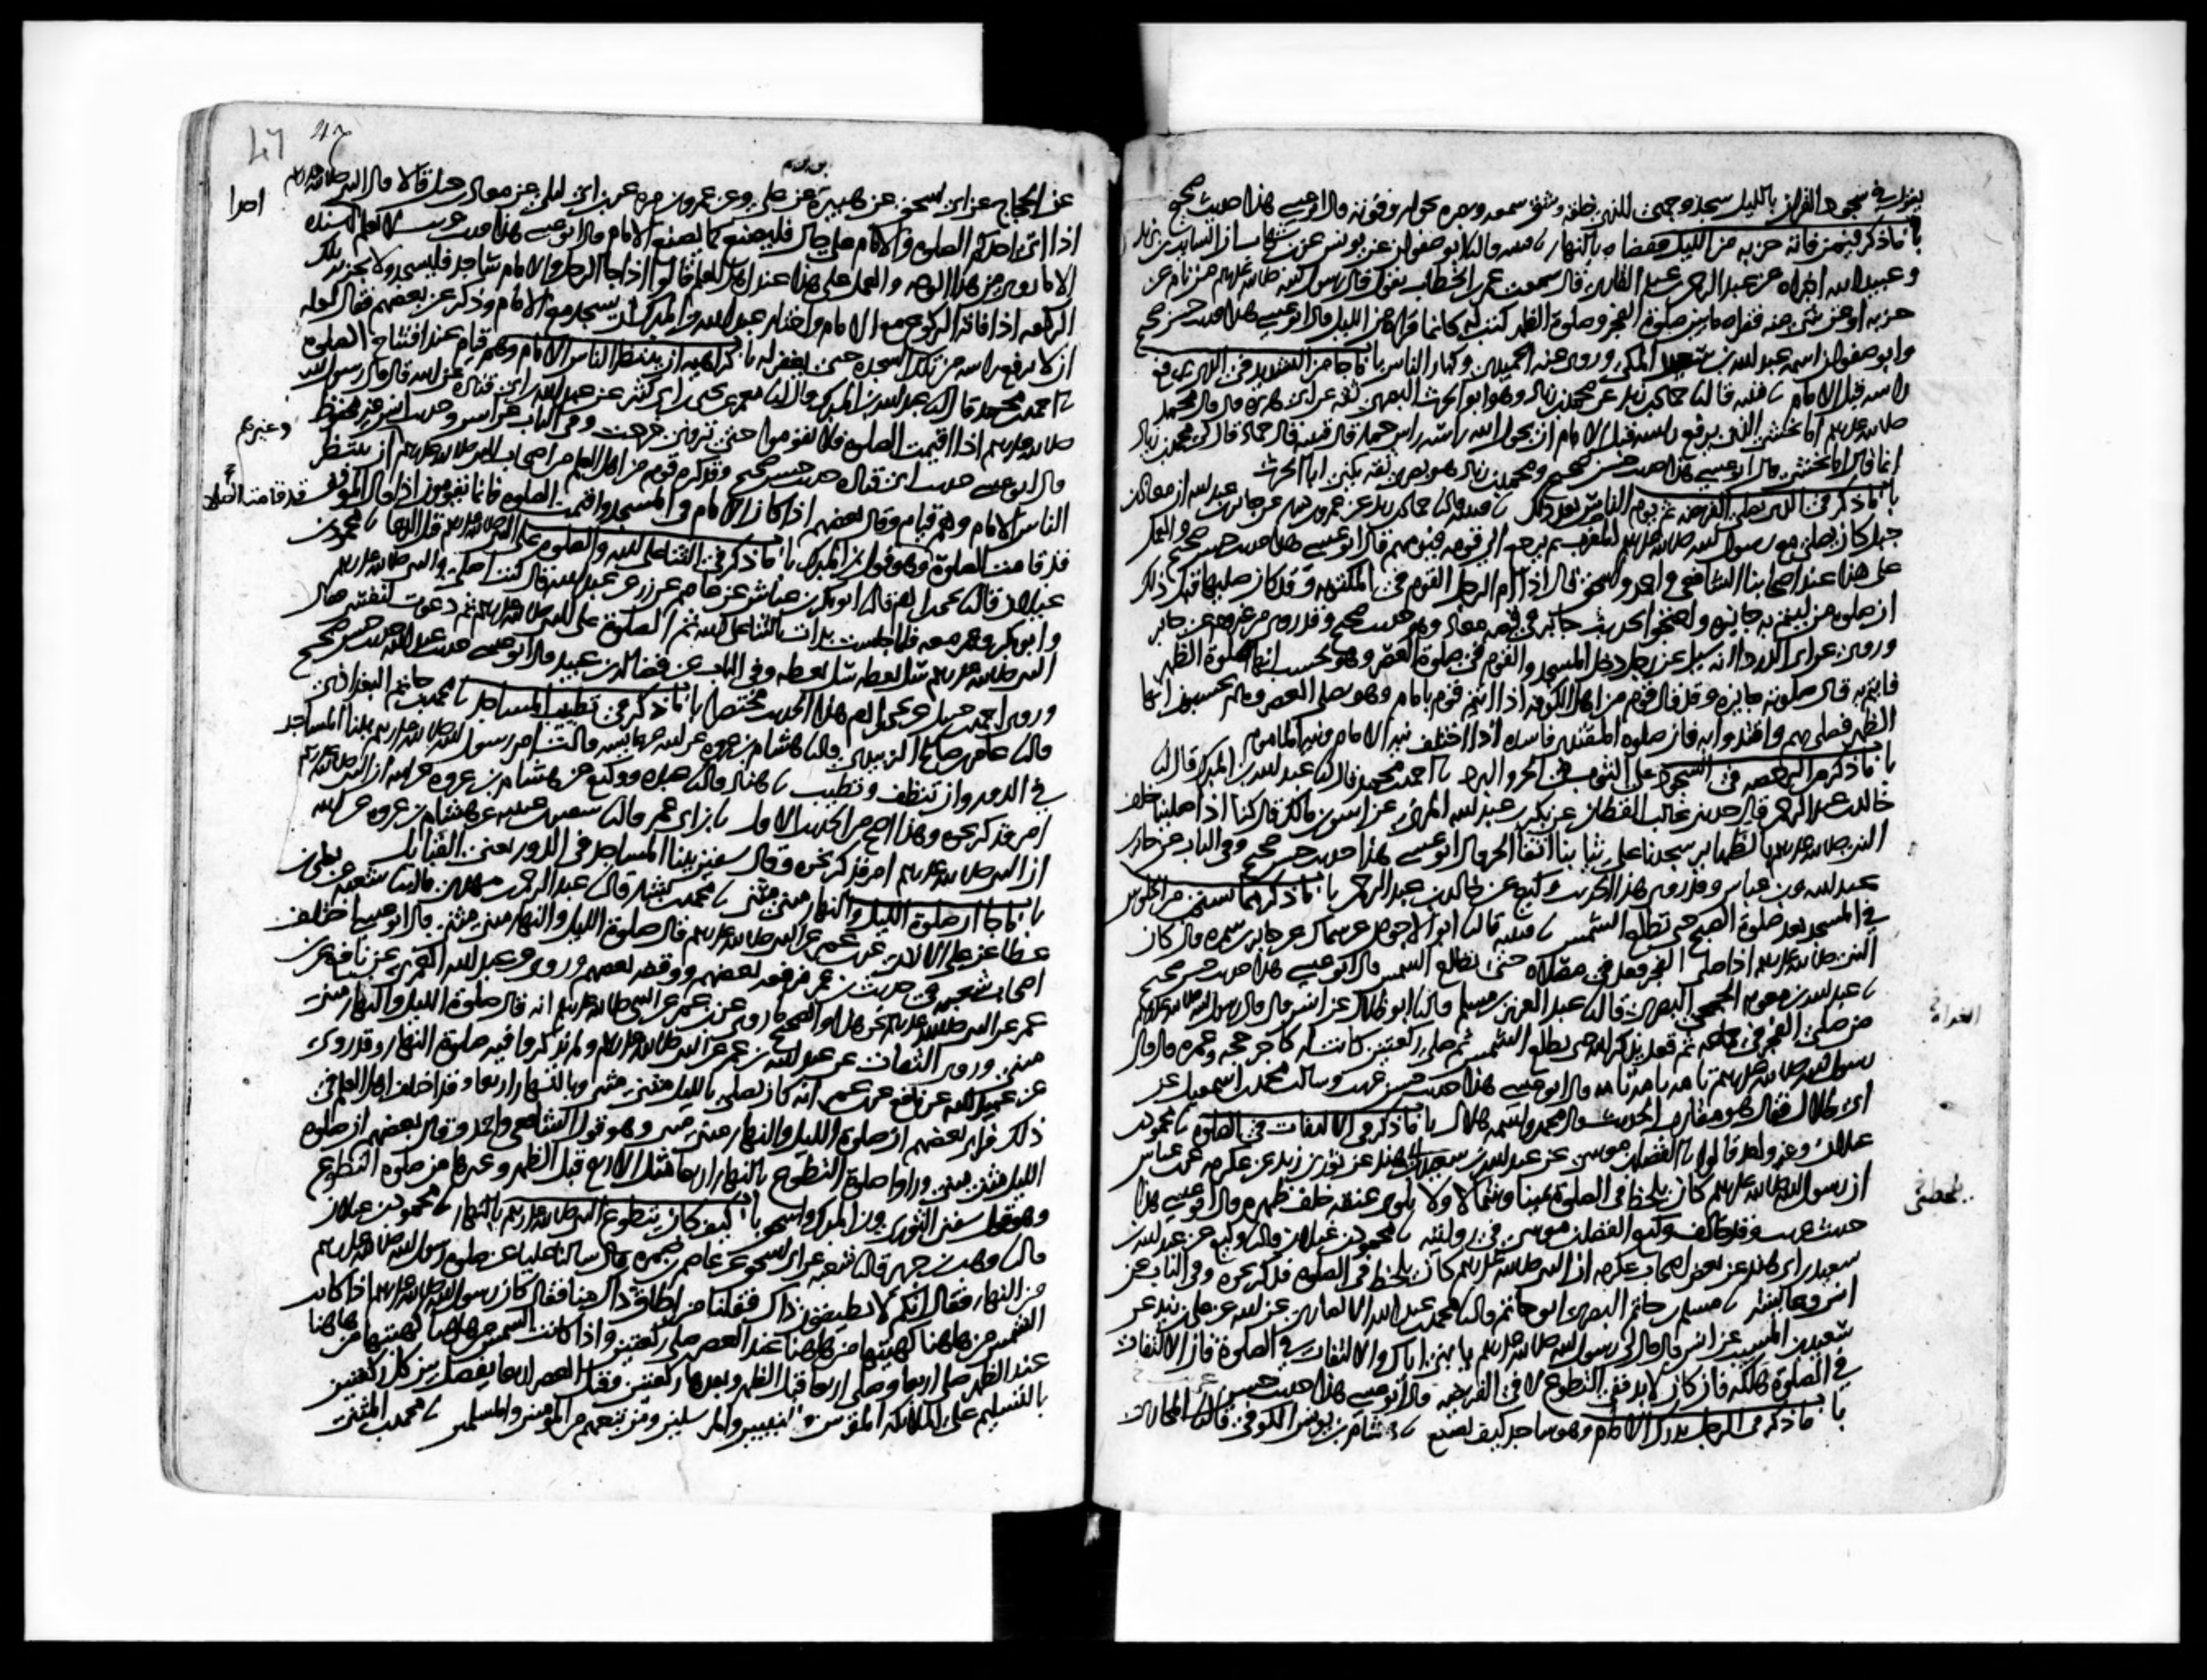 يقول في سجود القران بالليل سجد وجهي للذي خلقه وشق سمعه وبصره بحوله وقوته قال ابو عيسى هذا حديث صحيح
باب ما ذكر فيمن فاته حزبه من الليل فقضاه بالنهار قتيبة قال ابو صفوان عن يونس عن ابن شهاب ان السايب بن يزيد
وعبيد الله اخبراه عن عبد الرحمن بن عبد القاري قال سمعت عمر بن الخطاب يقول قال رسول الله صلى الله عليه وسلم من نام عن
حزبه او عن شي منه فقراه ما بين صلوة الفجر وصلوة الظهر كتب له كانما قراه من الليل قال ابو عيسى هذا حديث حسن صحيح
وابو صفوان اسمه عبد الله بن سعيد المكي وروى عنه الحميدي وكبار الناس باب ما جا من التشديد في الذي يرفع
راسه قبل الامام قتيبة قال حماد بن زيد عن محمد بن زياد وهو ابو الحرث البصري ثقة عن ابي هريرة قال قال محمد
صلى الله عليه وسلم اما يخشى الذي يرفع راسه قبل الامام ان يحول الله راسه راس حمار قال قتيبة قال حماد قال لي محمد بن زياد
انما قال اما يخشى قال ابو عيسى هذا حديث حسن صحيح ومحمد بن زياد هو بصري ثقة يكنى ابا الحرث
باب ما ذكر في الذي يصلي الفريضة ثم يوم الناس بعد ذلك قتيبة قال حماد بن زيد عن عمرو بن دينار عن جابر بن عبد الله ان معاذ بن
جبل كان يصلي مع رسول الله صلى الله عليه وسلم المغرب ثم يرجع الى قومه فيومهم قال ابو عيسى هذا حديث حسن صحيح والعمل
على هذا عند اصحابنا الشافعي واحمد واسحق قالوا اذا ام الرجل القوم في المكتوبة وقد كان صلاها قبل ذلك
ان صلوة من ايتم به جايزة واحتجوا بحديث جابر في قصة معاذ وهو حديث صحيح وقد روي من غير وجه عن جابر
وروي عن ابي الدردا انه سيل عن رجل دخل المسجد والقوم في صلوة العصر وهو يحسب انها صلوة الظهر
فايتم به قال صلوته جايزة وقد قال قوم من اهل الكوفة اذا ايتم قوم بامام وهو يصلي العصر وهم يحسبون انها
الظهر فصلى بهم واقتدوا به فان صلوة المقتدي فاسدة اذا اختلف نية الامام ونية الماموم
باب ما ذكر من الرخصة في السجود على الثوب في الحر والبرد احمد بن محمد قال عبد الله بن المبارك قال
خالد بن عبد الرحمن قال حدثني غالب القطان عن بكر بن عبد الله المزني عن انس بن مالك قال كنا اذا صلينا خلف
النبي صلى الله عليه وسلم بالظهاير سجدنا على ثيابنا اتقا الحر قال ابو عيسى هذا حديث حسن صحيح وفي الباب عن جابر
عبد الله وبن عباس وقد روى هذا الحديث وكيع عن خالد بن عبد الرحمن باب ما ذكر مما يستحب من الجلوس
في المسجد بعد صلوة الصبح حتى تطلع الشمس قتيبة قال ابو الاحوص عن سماك عن جابر بن سمرة قال كان
النبي صلى الله عليه وسلم اذا صلى الفجر قعد في مصلاه حتى تطلع الشمس قال ابو عيسى هذا حديث حسن صحيح
عبد الله بن معوية الجمحي البصري قال عبد العزيز بن مسلم قال ابو ظلال عن انس قال قال رسول الله صلى الله عليه وسلم
من صلى الفجر في جماعة ثم قعد يذكر الله حتى تطلع الشمس ثم صلى ركعتين كانت له كاجر حجة وعمرة قال قال
رسول الله صلى الله عليه وسلم تامة تامة تامة قال ابو عيسى هذا حديث حسن غريب وسالت محمد بن اسمعيل عن
ابي ظلال فقال هو مقارب الحديث قال محمد واسمه هلال باب ما ذكر في الالتفات في الصلوة محمود بن
غيلان وغير واحد قالوا الفضل بن موسى عن عبد الله بن سعيد بن ابي هند عن ثور بن زيد عن عكرمة عن بن عباس
ان رسول الله صلى الله عليه وسلم كان يلحظ في الصلوة يمينا وشمالا ولا يلوي عنقه خلف ظهره قال ابو عيسى هذا
حديث غريب وقد خالف وكيع الفضل بن موسى في روايته محمود بن غيلان قال وكيع عن عبد الله بن
سعيد بن ابي هند عن بعض اصحاب عكرمة ان النبي صلى الله عليه وسلم كان يلحظ في الصلوة فذكر نحوه وفي الباب عن
انس وعايشة مسلم بن حاتم البصري ابو حاتم قال محمد بن عبد الله الانصاري عن ابيه عن علي بن زيد عن
سعيد بن المسيب عن انس قال قال لي رسول الله صلى الله عليه وسلم يا بني اياك والالتفات في الصلوة فان الالتفات
في الصلوة هلكة فان كان لا بد ففي التطوع لا في الفريضة قال ابو عيسى هذا حديث حسن
باب ما ذكر في الرجل يدرك الامام وهو ساجد كيف يصنع هشام بن يونس الكوفي قال المحاربي
الغداة
يلحظ في
47
عن الحجاج عن ابي اسحق عن هبيرة عن علي وعن عمرو بن مرة عن بن ابي ليلى عن معاذ بن جبل قالا قال النبي صلى الله عليه وسلم
اذا اتى احدكم الصلوة والامام على حال فليصنع كما يصنع الامام قال ابو عيسى هذا حديث غريب لا نعلم احدا اسنده
الا ما روي من هذا الوجه والعمل على هذا عند اهل العلم قالوا اذا جا الرجل والامام ساجد فليسجد ولا تجزيه تلك
الركعة اذا فاته الركوع مع الامام واختار عبد الله بن المبارك ان يسجد مع الامام وذكر عن بعضهم فقال لعله
ان لا يرفع راسه من تلك السجدة حتى يغفر له باب كراهية ان ينتظر الناس الامام وهم قيام عند افتتاح الصلوة
احمد بن محمد قال عبد الله بن المبارك قال معمر عن يحيى بن ابي كثير عن عبد الله بن ابي قتادة عن ابيه قال قال رسول الله
صلى الله عليه وسلم اذا اقيمت الصلوة فلا تقوموا حتى تروني خرجت وفي الباب عن انس وحديث انس غير محفوظ
قال ابو عيسى حديث ابي قتادة حديث حسن صحيح وقد كره قوم من اهل العلم من اصحاب النبي صلى الله عليه وسلم وغيرهم ان ينتظر
الناس الامام وهم قيام وقال بعضهم اذا كان الامام في المسجد واقيمت الصلوة فانما يقومون اذا قال الموذن قد قامت الصلاة
قد قامت الصلوة وهو قول ابن المبارك باب ما ذكر في الثنا على الله والصلوة على النبي صلى الله عليه وسلم قبل الدعا محمود بن
غيلان قال يحيى بن ادم قال ابو بكر بن عياش عن عاصم عن زر عن عبد الله قال كنت اصلي والنبي صلى الله عليه وسلم
وابو بكر وعمر معه فلما جلست بدات بالثنا على الله ثم الصلوة على النبي صلى الله عليه وسلم ثم دعوت لنفسي فقال
النبي صلى الله عليه وسلم سل تعطه سل تعطه وفي الباب عن فضالة بن عبيد قال ابو عيسى حديث عبد الله حديث حسن صحيح
وروى احمد بن حنبل عن يحيى بن ادم هذا الحديث مختصرا باب ما ذكر في تطييب المساجد محمد بن حاتم البغدادي
قال عامر بن صالح الزبيري قال هشام بن عروة عن ابيه عن عايشة قالت امر رسول الله صلى الله عليه وسلم ببنا المساجد
في الدور وان تنظف وتطيب هناد قال عبدة ووكيع عن هشام بن عروة عن ابيه ان النبي صلى الله عليه وسلم
امر فذكر نحوه وهذا اصح من الحديث الاول بن ابي عمر قال سفين بن عيينة عن هشام بن عروة عن ابيه
ان النبي صلى الله عليه وسلم امر فذكر نحوه وقال سفين ببنا المساجد في الدور يعني القبايل
باب ما جا ان صلوة الليل والنهار مثنى مثنى محمد بن بشار قال عبد الرحمن بن مهدي قال شعبة عن يعلى بن
عطا عن علي الازدي عن بن عمر عن النبي صلى الله عليه وسلم قال صلوة الليل والنهار مثنى مثنى قال ابو عيسى اختلف
اصحاب شعبة في حديث بن عمر فرفعه بعضهم ووقفه بعضهم وروي عن عبد الله العمري عن نافع عن بن
عمر عن النبي صلى الله عليه وسلم نحو هذا والصحيح ما روي عن بن عمر عن النبي صلى الله عليه وسلم انه قال صلوة الليل والنهار مثنى
مثنى وروى الثقات عن عبد الله بن عمر عن النبي صلى الله عليه وسلم ولم يذكروا فيه صلوة النهار وقد روي
عن عبيد الله عن نافع عن بن عمر انه كان يصلي بالليل مثنى مثنى وبالنهار اربعا وقد اختلف اهل العلم في
ذلك فراى بعضهم ان صلوة الليل والنهار مثنى مثنى وهو قول الشافعي واحمد وقال بعضهم ان صلوة
الليل مثنى مثنى وراوا صلوة التطوع بالنهار اربعا مثل الاربع قبل الظهر وغيرها من صلوة التطوع
وهو قول سفين الثوري وبن المبارك واسحق باب كيف كان يتطوع النبي صلى الله عليه وسلم بالنهار محمود بن غيلان
قال وهب بن جرير قال شعبة عن ابي اسحق عن عاصم بن ضمرة قال سالنا عليا عن صلوة رسول الله صلى الله عليه وسلم
من النهار فقال انكم لا تطيقون ذاك فقلنا من اطاق ذاك منا فقال كان رسول الله صلى الله عليه وسلم اذا كانت
الشمس من هاهنا كهيئتها من هاهنا عند العصر صلى ركعتين واذا كانت الشمس من هاهنا كهيئتها من هاهنا
عند الظهر صلى اربعا وصلى اربعا قبل الظهر وبعدها ركعتين وقبل العصر اربعا يفصل بين كل ركعتين
بالتسليم على الملائكة المقربين والنبيين والمرسلين ومن تبعهم من المومنين والمسلمين محمد بن المثنى